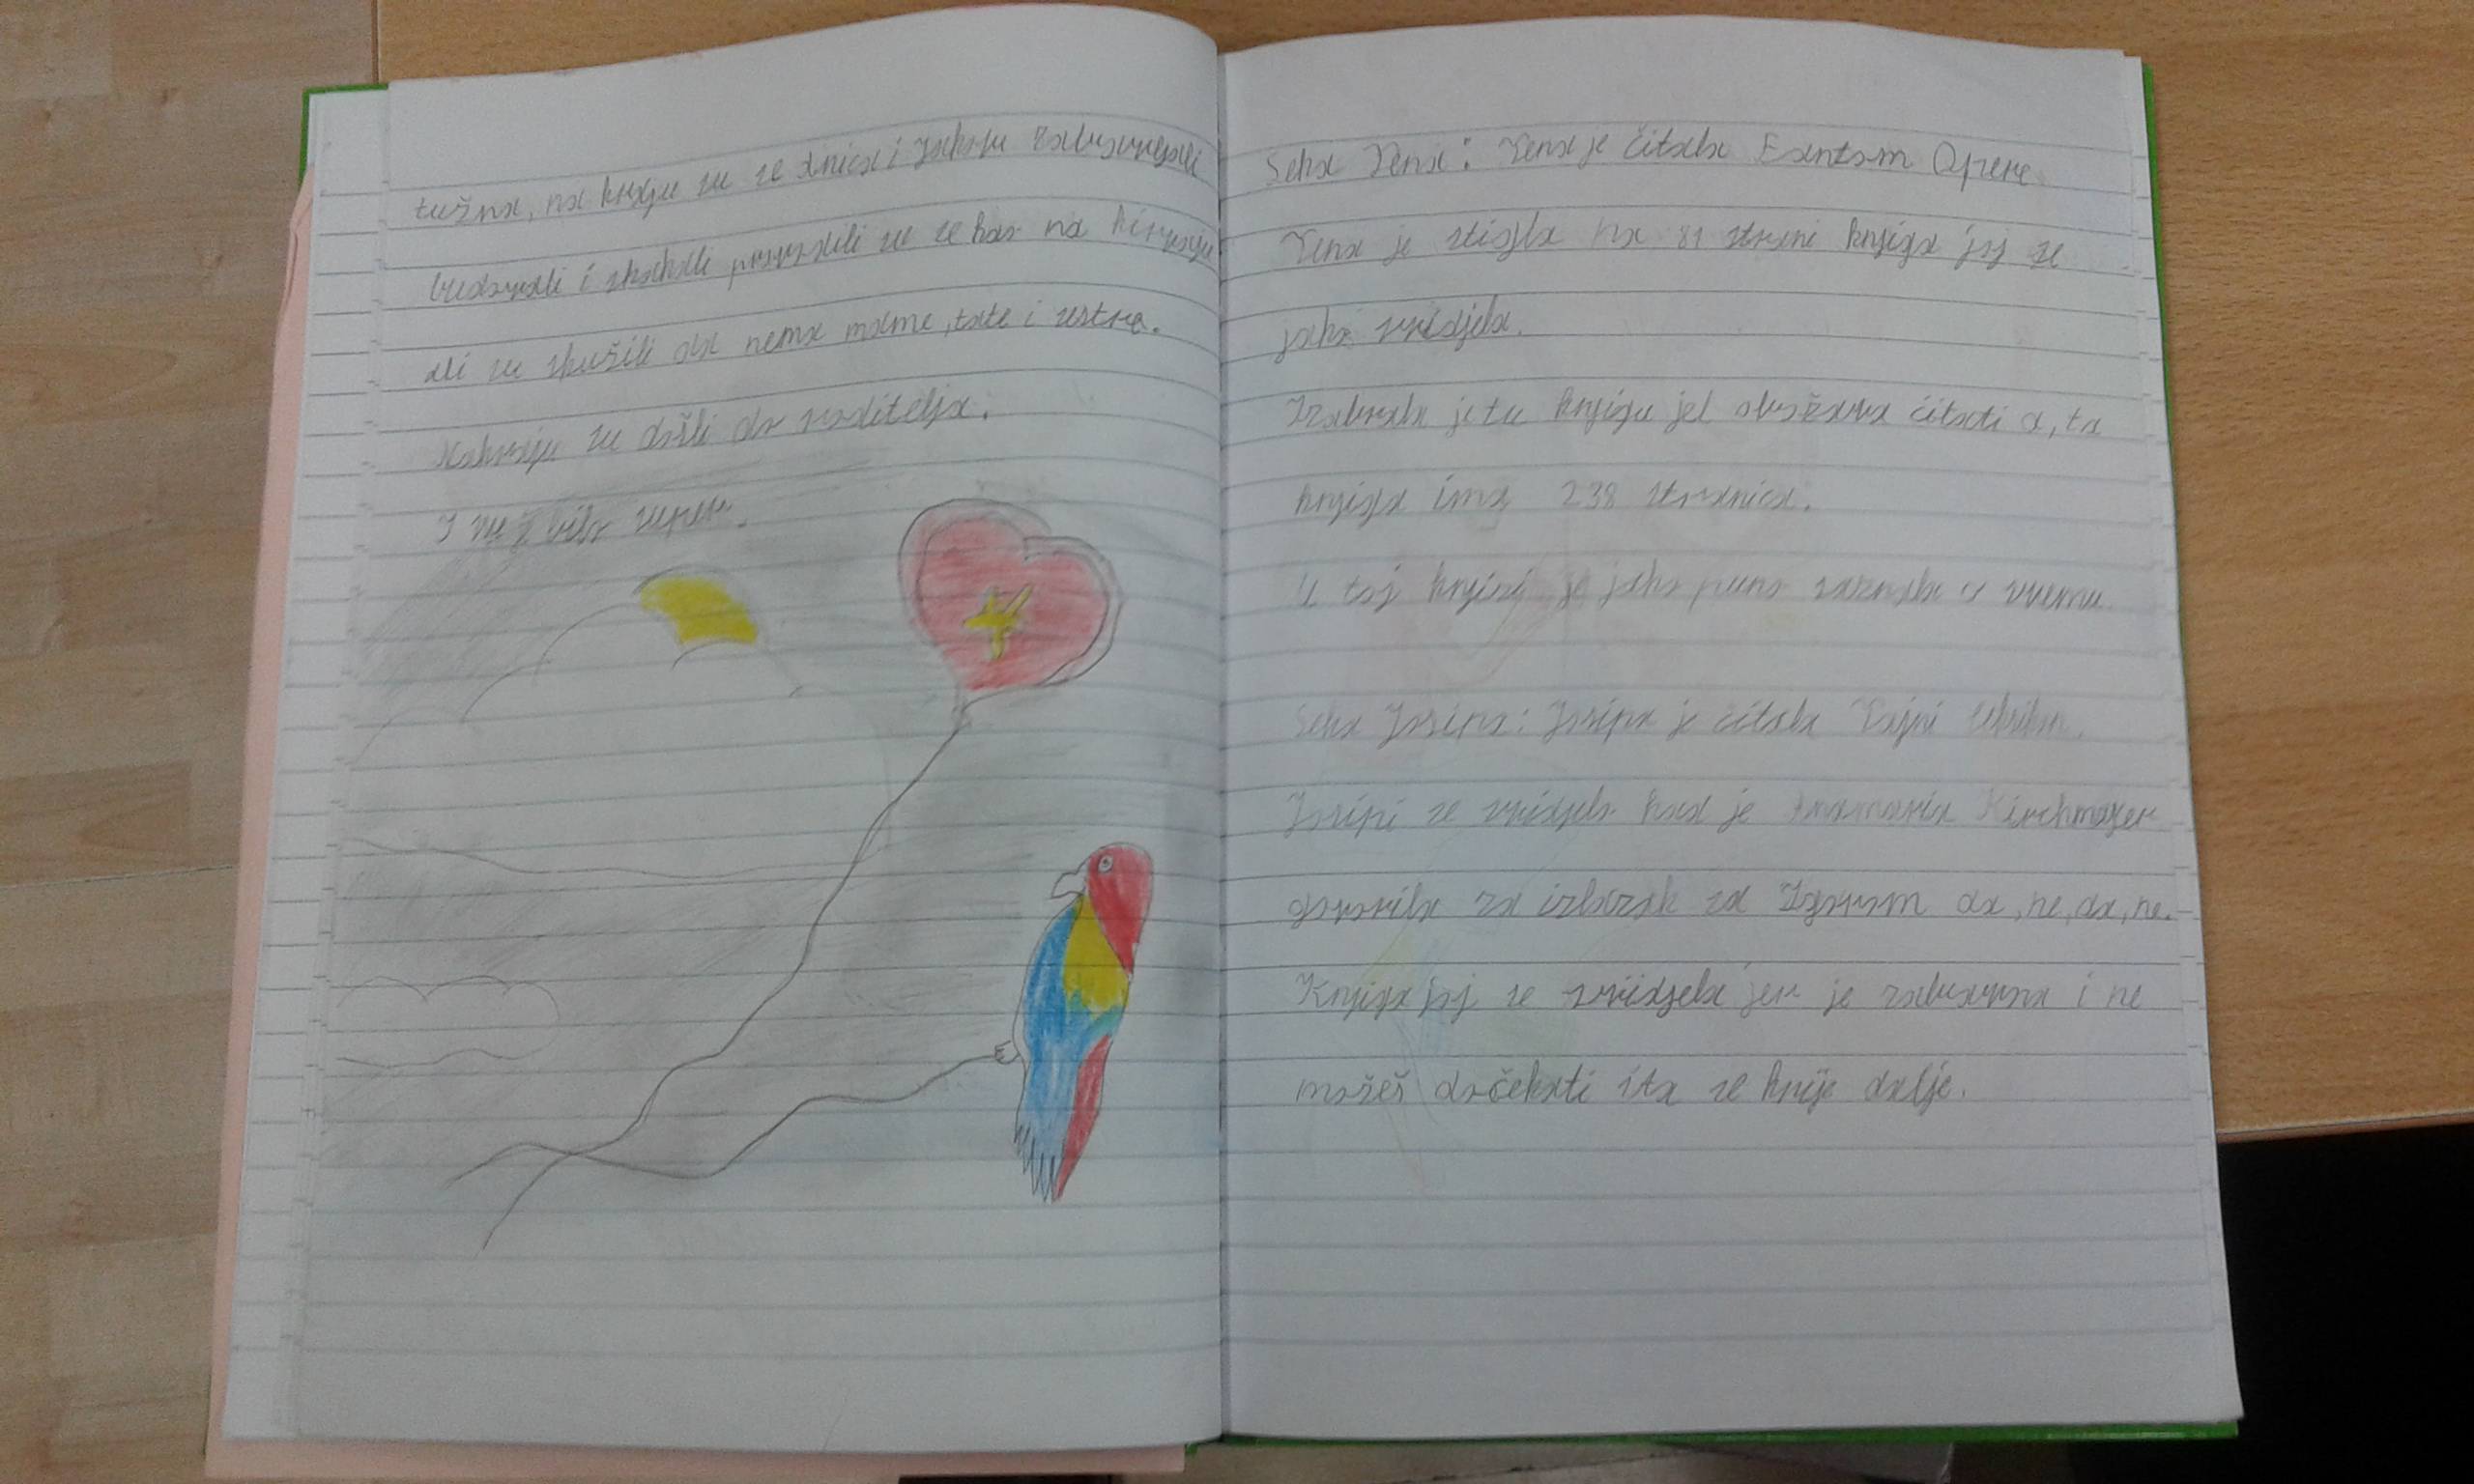 tužna, na kraju su se snica i jako su zabavljali
i skakali ponašali su se kao na
ali su skužili da nema mame, tate i sestre.
Nakraju su došli do roditelja.
I sve bilo super.
Seka Tena: Tena je čitala Fantom Opere.
Tena je stigla na 81 strani knjiga joj se
jako svidjela.
Izabrala je tu knjigu jel obožava čitati a, ta
knjiga ima 238 stranica.
U toj knjizi je jako puno saznala o svemu
Seka Josipa: Josipa je čitala Tajni
Josipi se svidjelo kad je Anamaria Kirchmayer
govorila za izlazak sa Igorom da, ne, da, ne.
Knjiga joj se svidjela jer je zabavna i ne
možeš dočekati šta se krije dalje.